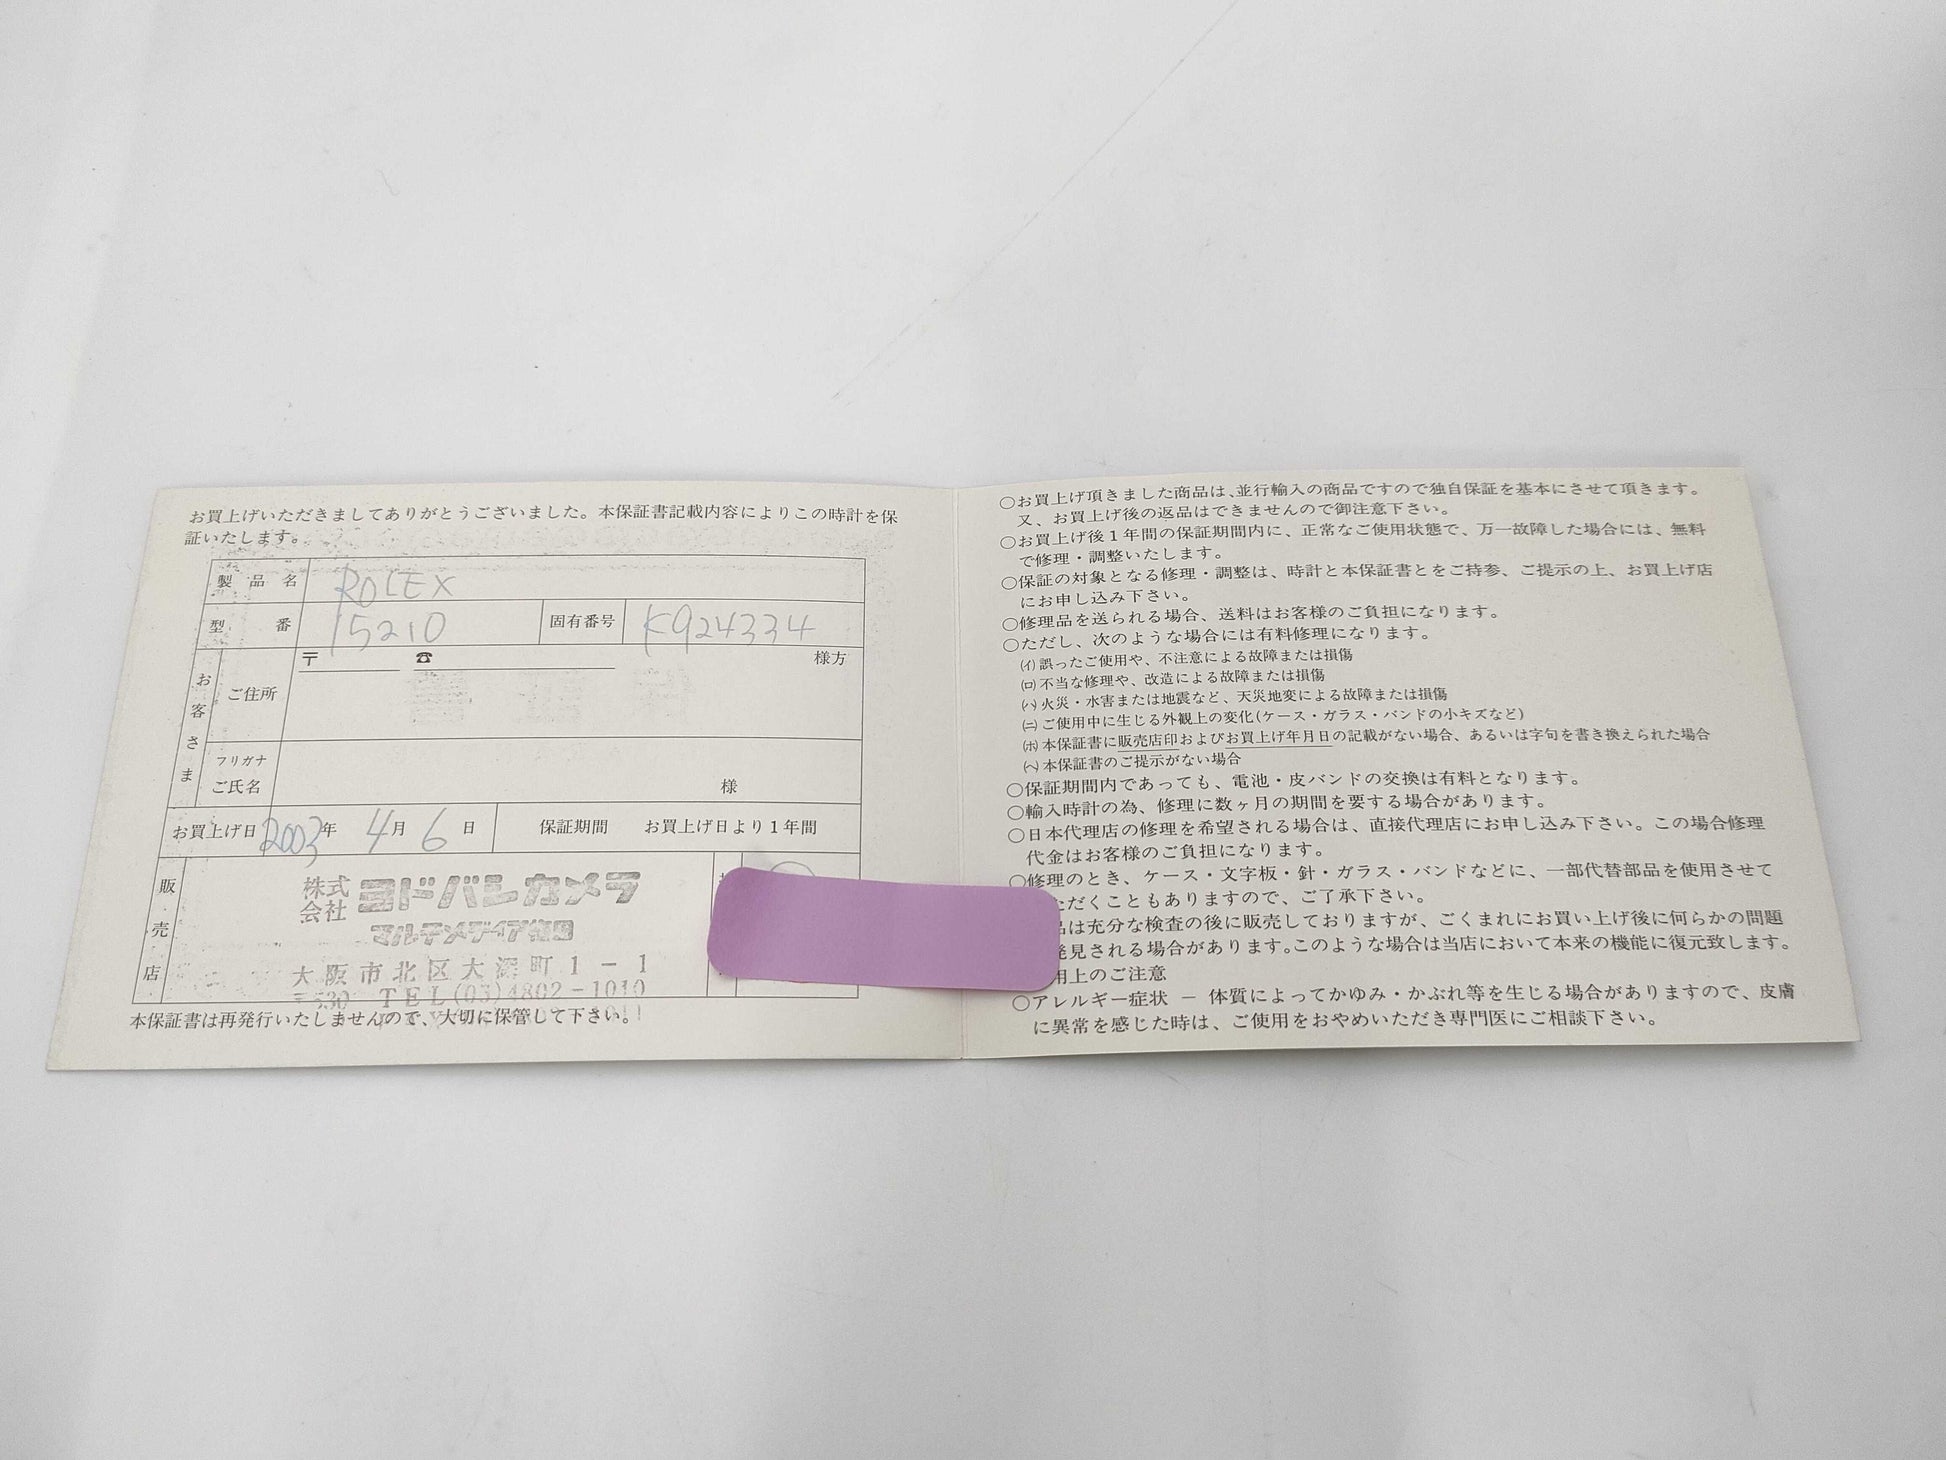 お買上げいただきましてありがとうございました。本保証書記載内容によりこの時計を保
証いたします。
製品名 ROLEX
型番 15210 固有番号 K924334
お客さま
ご住所 〒 ☎ 様方
フリガナ
ご氏名 様
お買上げ日 2003年 4月 6日 保証期間 お買上げ日より1年間
販売店
株式会社 ヨドバシカメラ
マルチメディア梅田
大阪市北区大深町1-1
〒530 TEL 4802-1010
本保証書は再発行いたしませんので、大切に保管して下さい。
○お買上げ頂きました商品は、並行輸入の商品ですので独自保証を基本にさせて頂きます。
又、お買上げ後の返品はできませんので御注意下さい。
○お買上げ後1年間の保証期間内に、正常なご使用状態で、万一故障した場合には、無料
で修理・調整いたします。
○保証の対象となる修理・調整は、時計と本保証書とをご持参、ご提示の上、お買上げ店
にお申し込み下さい。
○修理品を送られる場合、送料はお客様のご負担になります。
○ただし、次のような場合には有料修理になります。
(イ)誤ったご使用や、不注意による故障または損傷
(ロ)不当な修理や、改造による故障または損傷
(ハ)火災・水害または地震など、天災地変による故障または損傷
(ニ)ご使用中に生じる外観上の変化(ケース・ガラス・バンドの小キズなど)
(ホ)本保証書に販売店印およびお買上げ年月日の記載がない場合、あるいは字句を書き換えられた場合
(ヘ)本保証書のご提示がない場合
○保証期間内であっても、電池・皮バンドの交換は有料となります。
○輸入時計の為、修理に数ヶ月の期間を要する場合があります。
○日本代理店の修理を希望される場合は、直接代理店にお申し込み下さい。この場合修理
代金はお客様のご負担になります。
○修理のとき、ケース・文字板・針・ガラス・バンドなどに、一部代替部品を使用させて
ただくこともありますので、ご了承下さい。
品は充分な検査の後に販売しておりますが、ごくまれにお買い上げ後に何らかの問題
発見される場合があります。このような場合は当店において本来の機能に復元致します。
用上のご注意
○アレルギー症状 － 体質によってかゆみ・かぶれ等を生じる場合がありますので、皮膚
に異常を感じた時は、ご使用をおやめいただき専門医にご相談下さい。